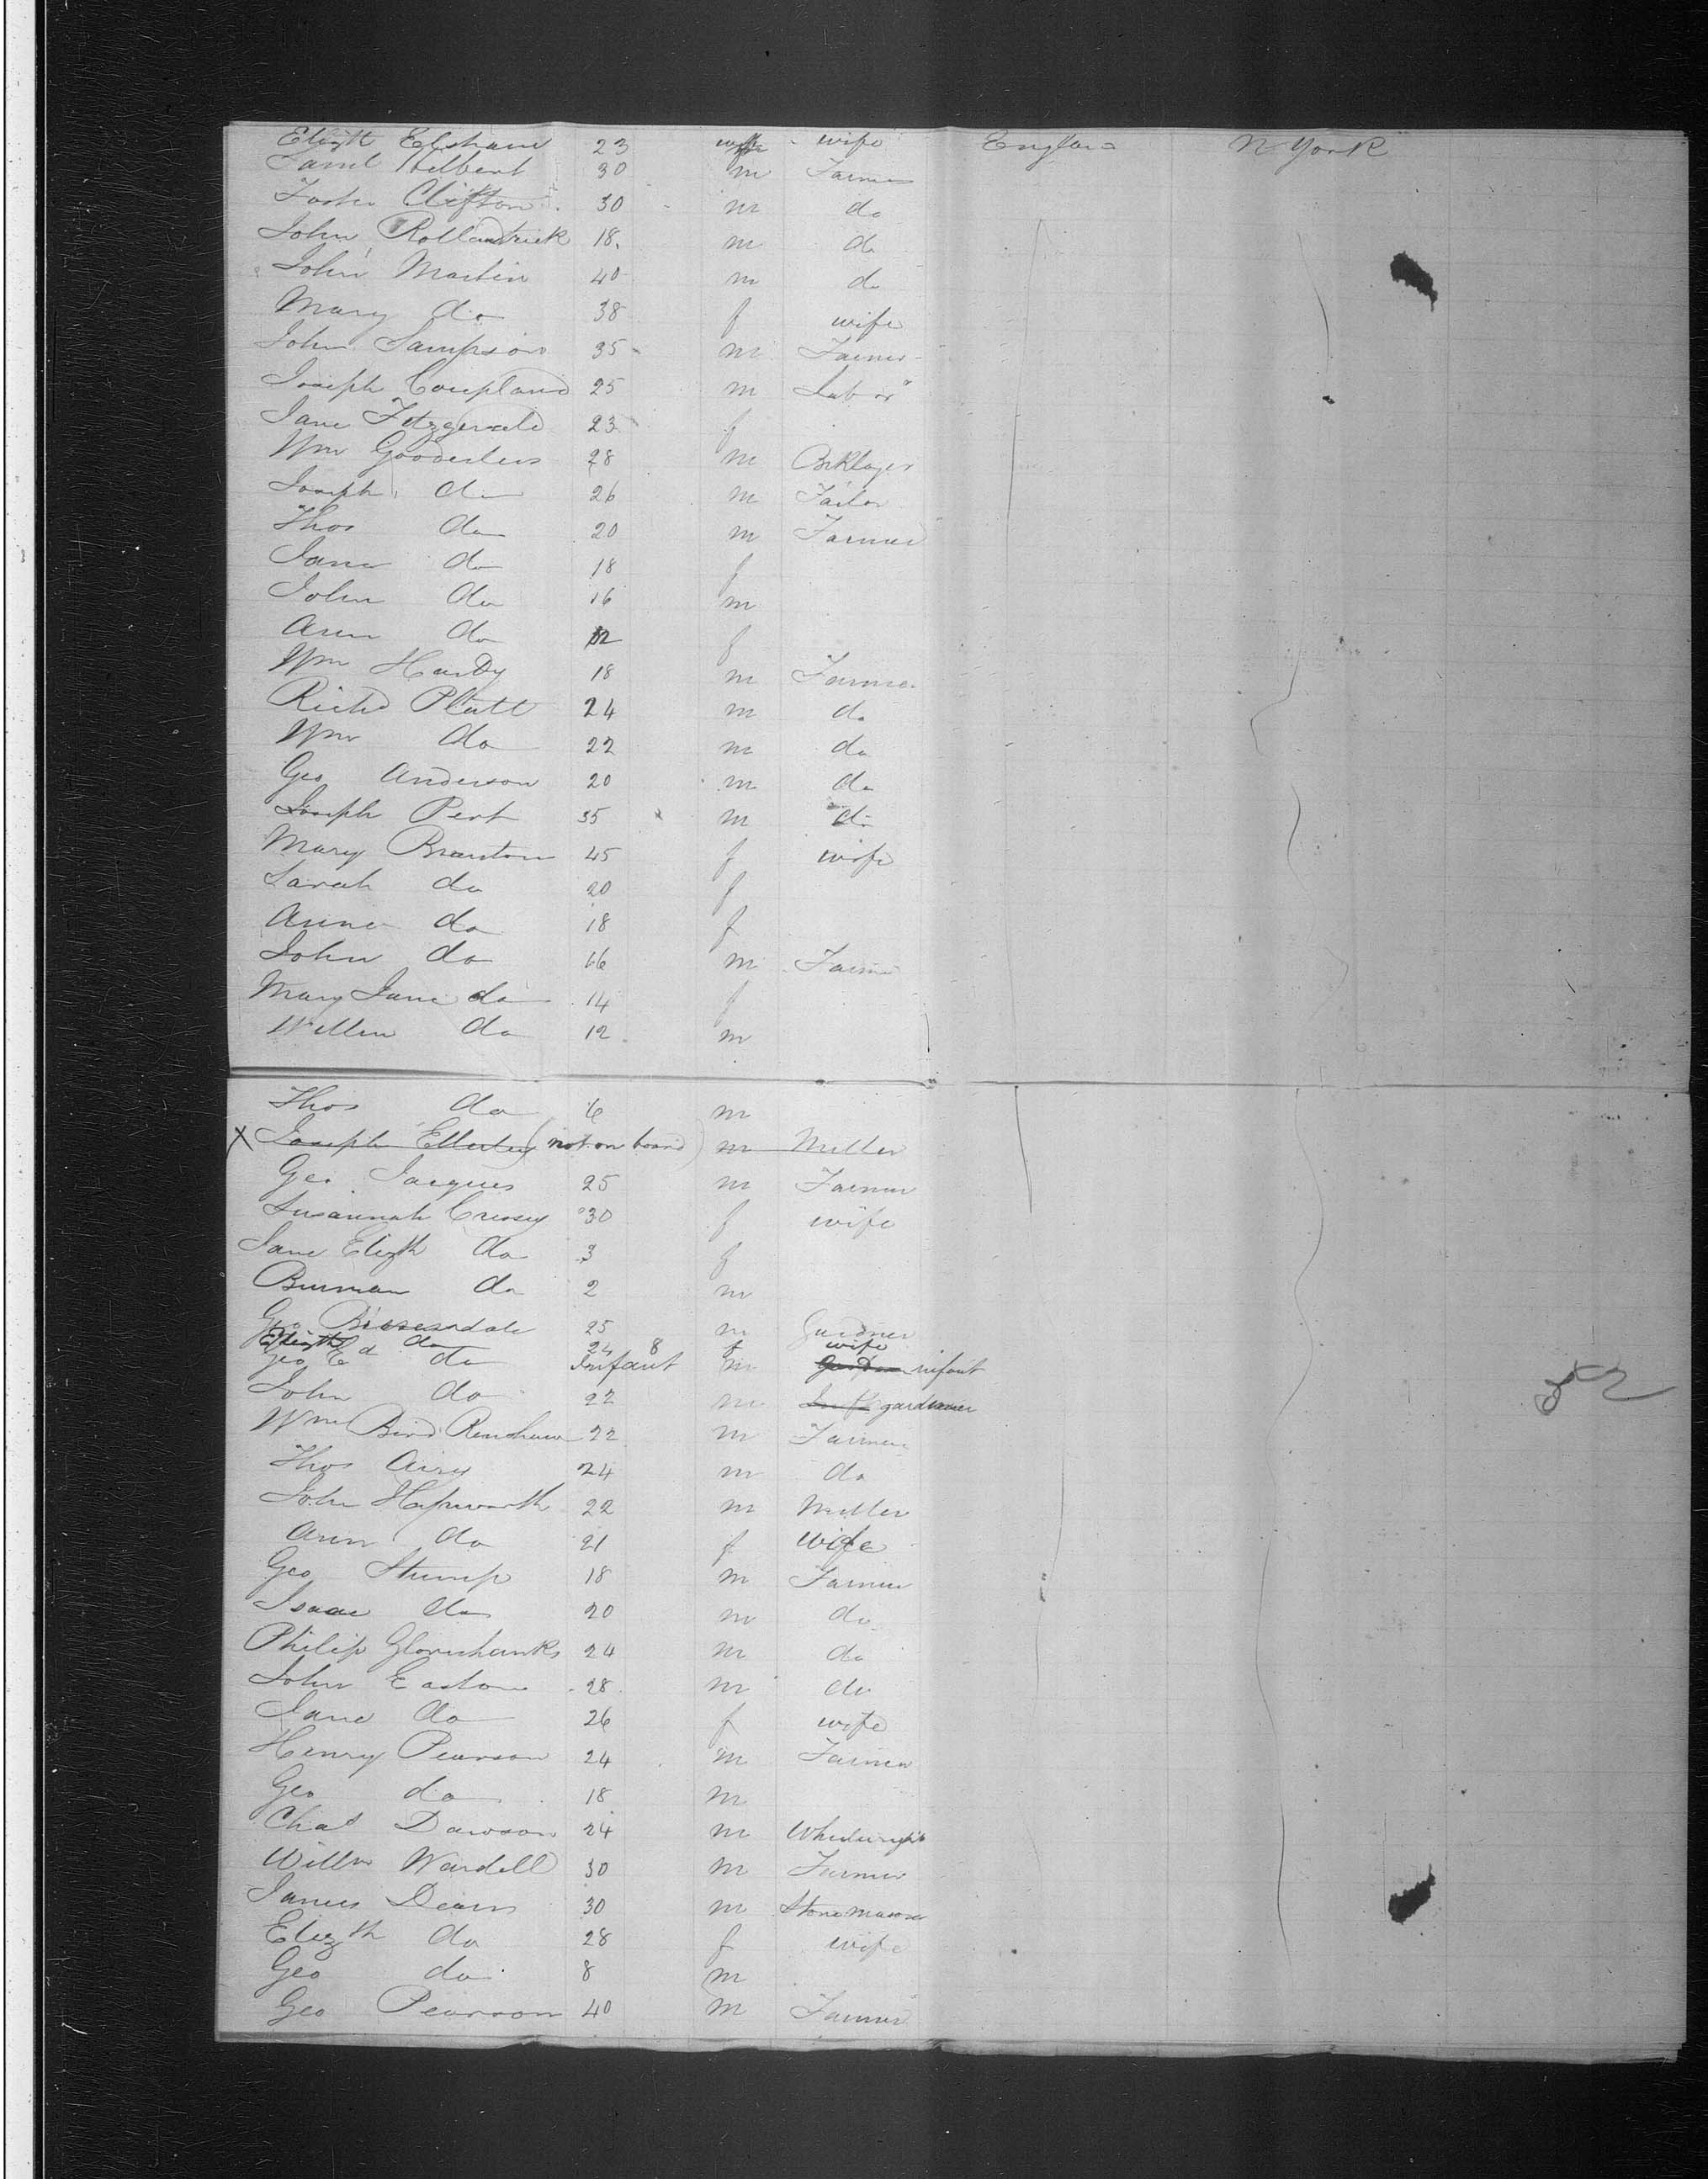 Elizth Elsham 23 wife wife England N York
Saml Hilbert 30 m Farmer
Foster Clifton 30 m do
John 18 m do
John Martin 40 m do
Mary do 38 f wife
John Sampson 35 m Farmer
Joseph Coupland 25 m Labor
Jane Fitzgerald 23 f
Wm 28 m Bricklayer
Joseph do 26 m Tailor
Thos do 20 m Farmer
Jane do 18 f
John do 16 m
Ann do 12 f
Wm Hardy 18 m Farmer
Richd Platt 24 m do
Wm do 22 m do
Geo Anderson 20 m do
Joseph Pert 35 m do
Mary Branton 45 f wife
Sarah do 20 f
Anna do 18 f
John do 16 m Farmer
Mary Jane do 14 f
Willm do 12 m
Thos do 6 m
X Joseph (not on board) m Miller
Geo Jaques 25 m Farmer
Susannah Cressey 30 f wife
Jane Elizth do 3 f
Burman do 2 m
Geo 25 m Gardner
Elizth do 24 f wife
Geo Ed do Infant 8 m infant
John do 22 m gardener
Wm Bird Renshaw 22 m Farmer
Thos Airey 24 m do
John Hepworth 22 m Miller
Ann do 21 f wife
Geo Stump 18 m Farmer
Isaac do 20 m do
Philip 24 m do
John Easton 28 m do
Jane do 26 f wife
Henry Pearson 24 m Farmer
Geo do 18 m
Chas Dawson 24 m Wheelwright
Willm Wardell 30 m Farmer
James Deans 30 m Stone mason
Elizth do 28 f wife
Geo do 8 m
Geo Pearson 40 m Farmer
52